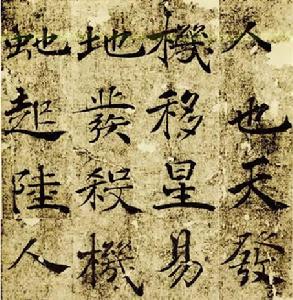 人也天發
機移星易
地發殺機
虵起陸人